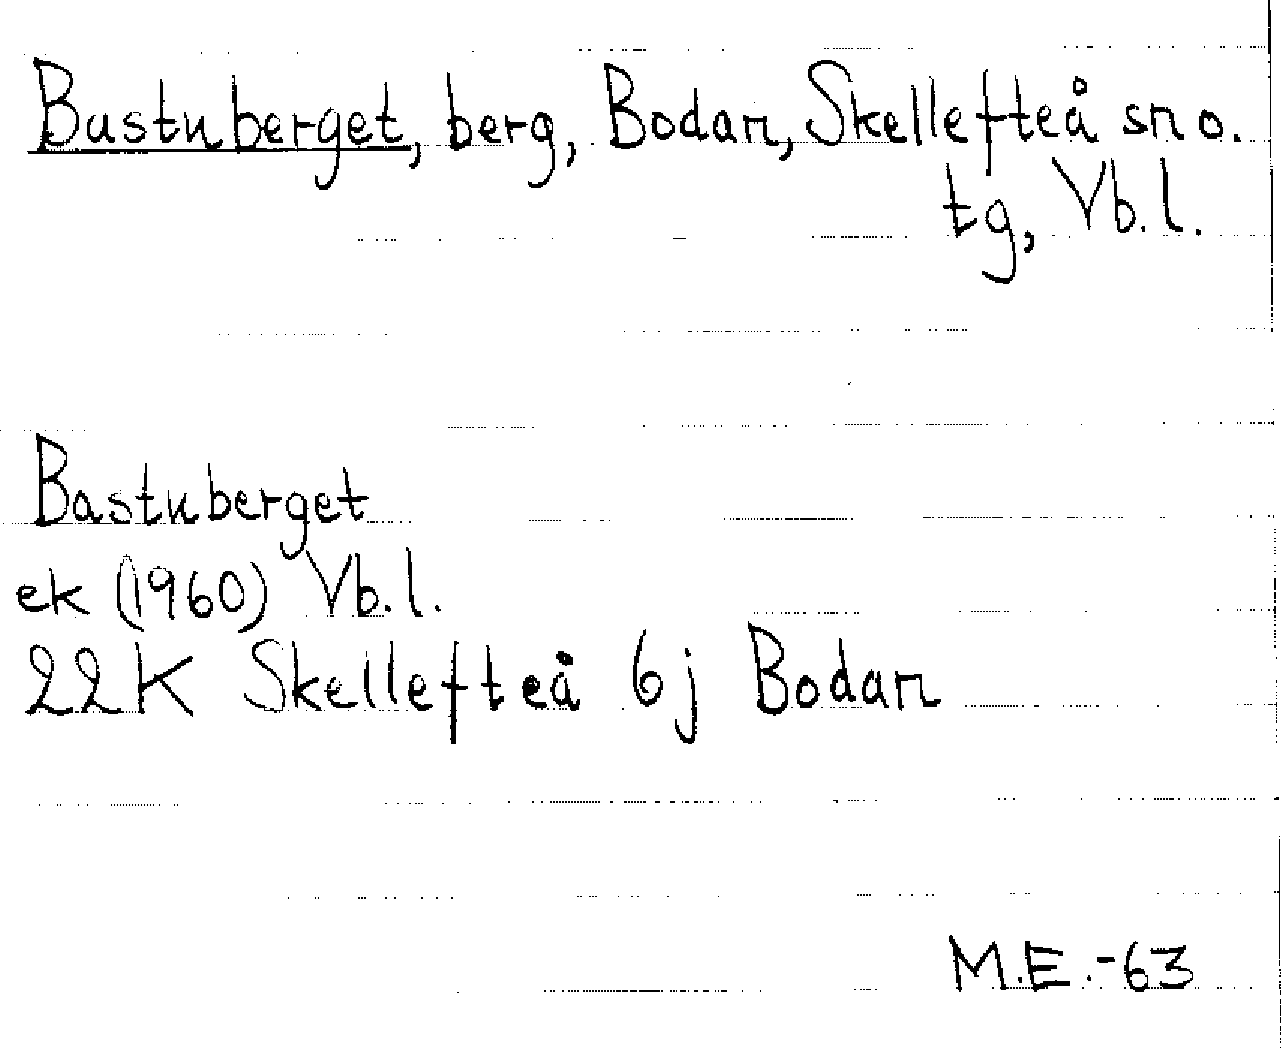 Bastuberget, berg, Bodan, Skellefteå sn o.
tg, Vb.l.
Bastuberget
ek (1960) Vb.l.
22K Skellefteå 6j Bodan
M.E.-63